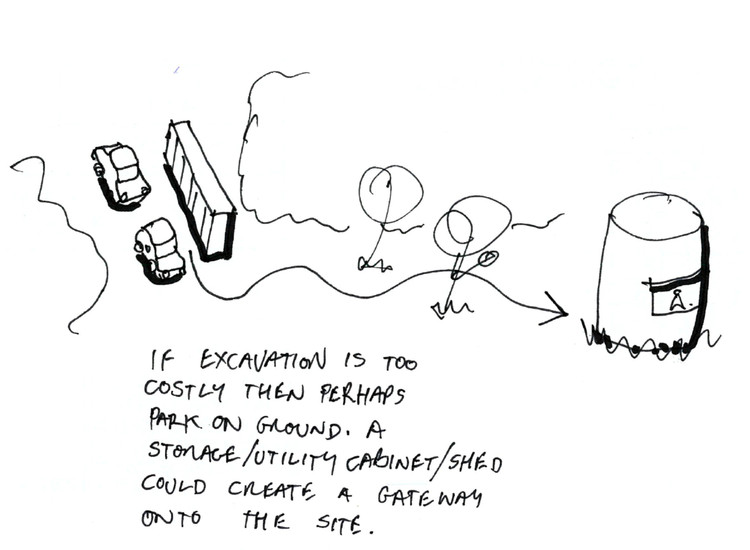 IF EXCAVATION IS TOO
COSTLY THEN PERHAPS
PARK ON GROUND. A
STORAGE/UTILITY CABINET/SHED
COULD CREATE A GATEWAY
ONTO THE SITE.